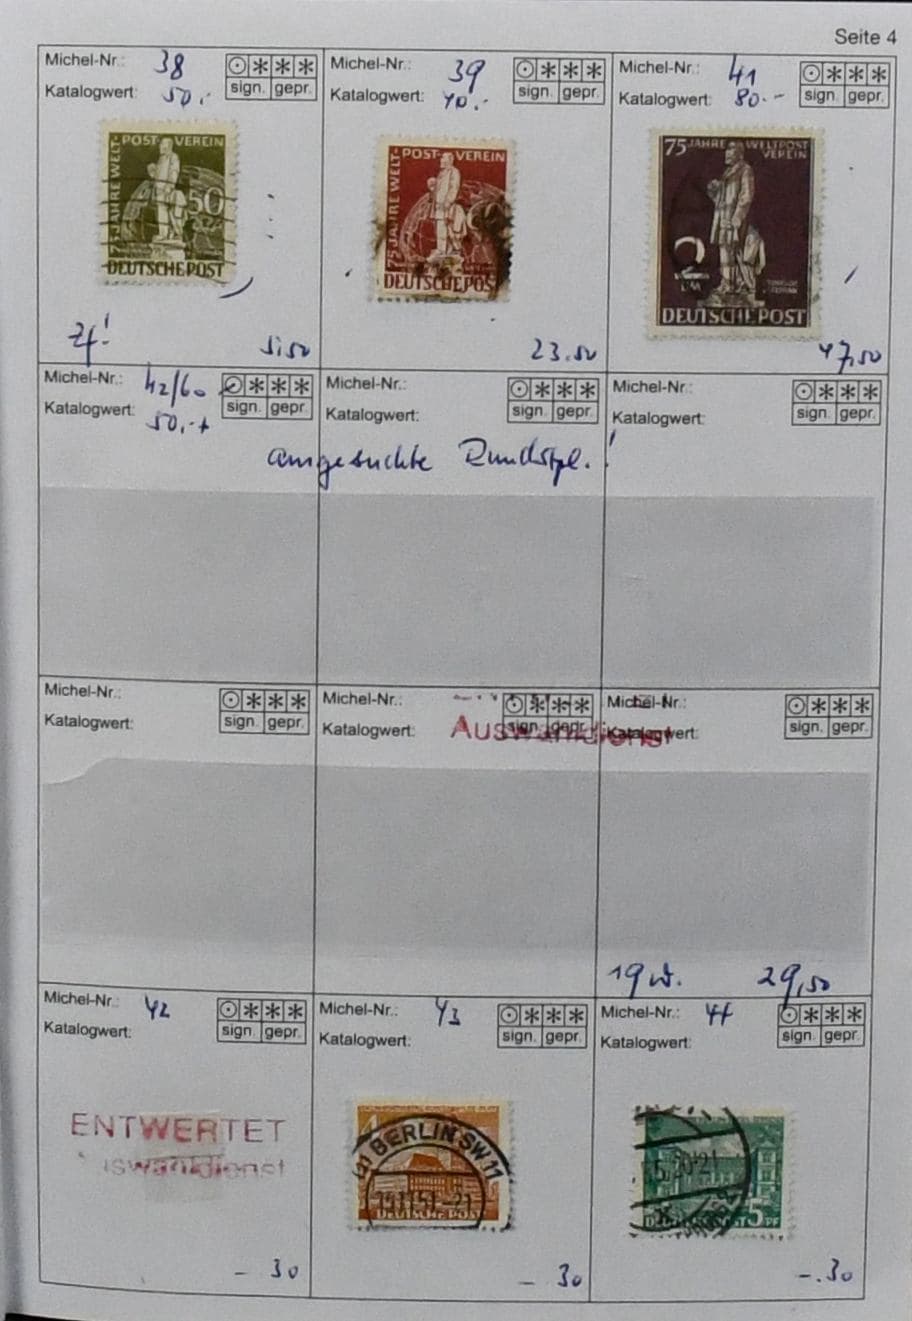 Seite 4
Michel-Nr.: 38
Katalogwert: 50.-
sign. gepr.
75 JAHRE WELT-POST VEREIN
50
DEUTSCHE POST
Zf!
5,50
Michel-Nr.: 39
Katalogwert: 40.-
sign. gepr.
75 JAHRE WELT-POST VEREIN
DEUTSCHE POST
23.50
Michel-Nr.: 41
Katalogwert: 80.-
sign. gepr.
75 JAHRE WELTPOST VEREIN
2
DM
DEUTSCHE POST
47,50
Michel-Nr.: 42/60
Katalogwert: 50,-+
sign. gepr.
Michel-Nr.:
Katalogwert:
sign. gepr.
Michel-Nr.:
Katalogwert:
sign. gepr.
ausgesuchte Rundstpl.!
Michel-Nr.:
Katalogwert:
sign. gepr.
Michel-Nr.:
Katalogwert:
sign. gepr.
Michel-Nr.:
Katalogwert:
sign. gepr.
Auswahldienst
19 W. 29,50
Michel-Nr.: 42
Katalogwert:
sign. gepr.
ENTWERTET
Auswahldienst
-30
Michel-Nr.: 43
Katalogwert:
sign. gepr.
4
BERLIN SW 11
DEUTSCHE POST
-30
Michel-Nr.: 44
Katalogwert:
sign. gepr.
5 PF
-.30